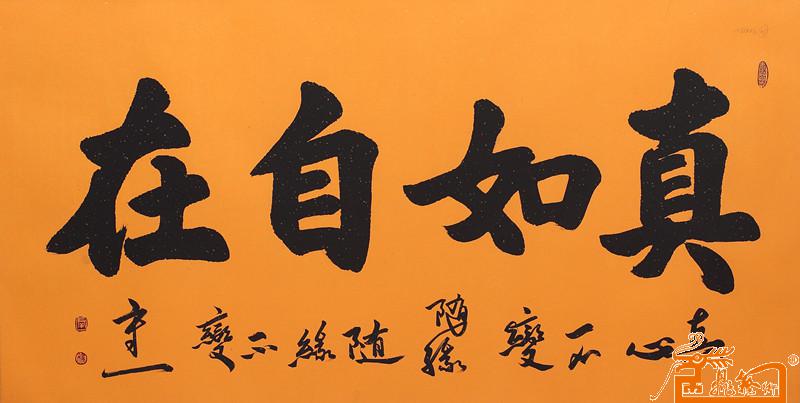 真如自在
真心不變隨緣隨緣不變守一